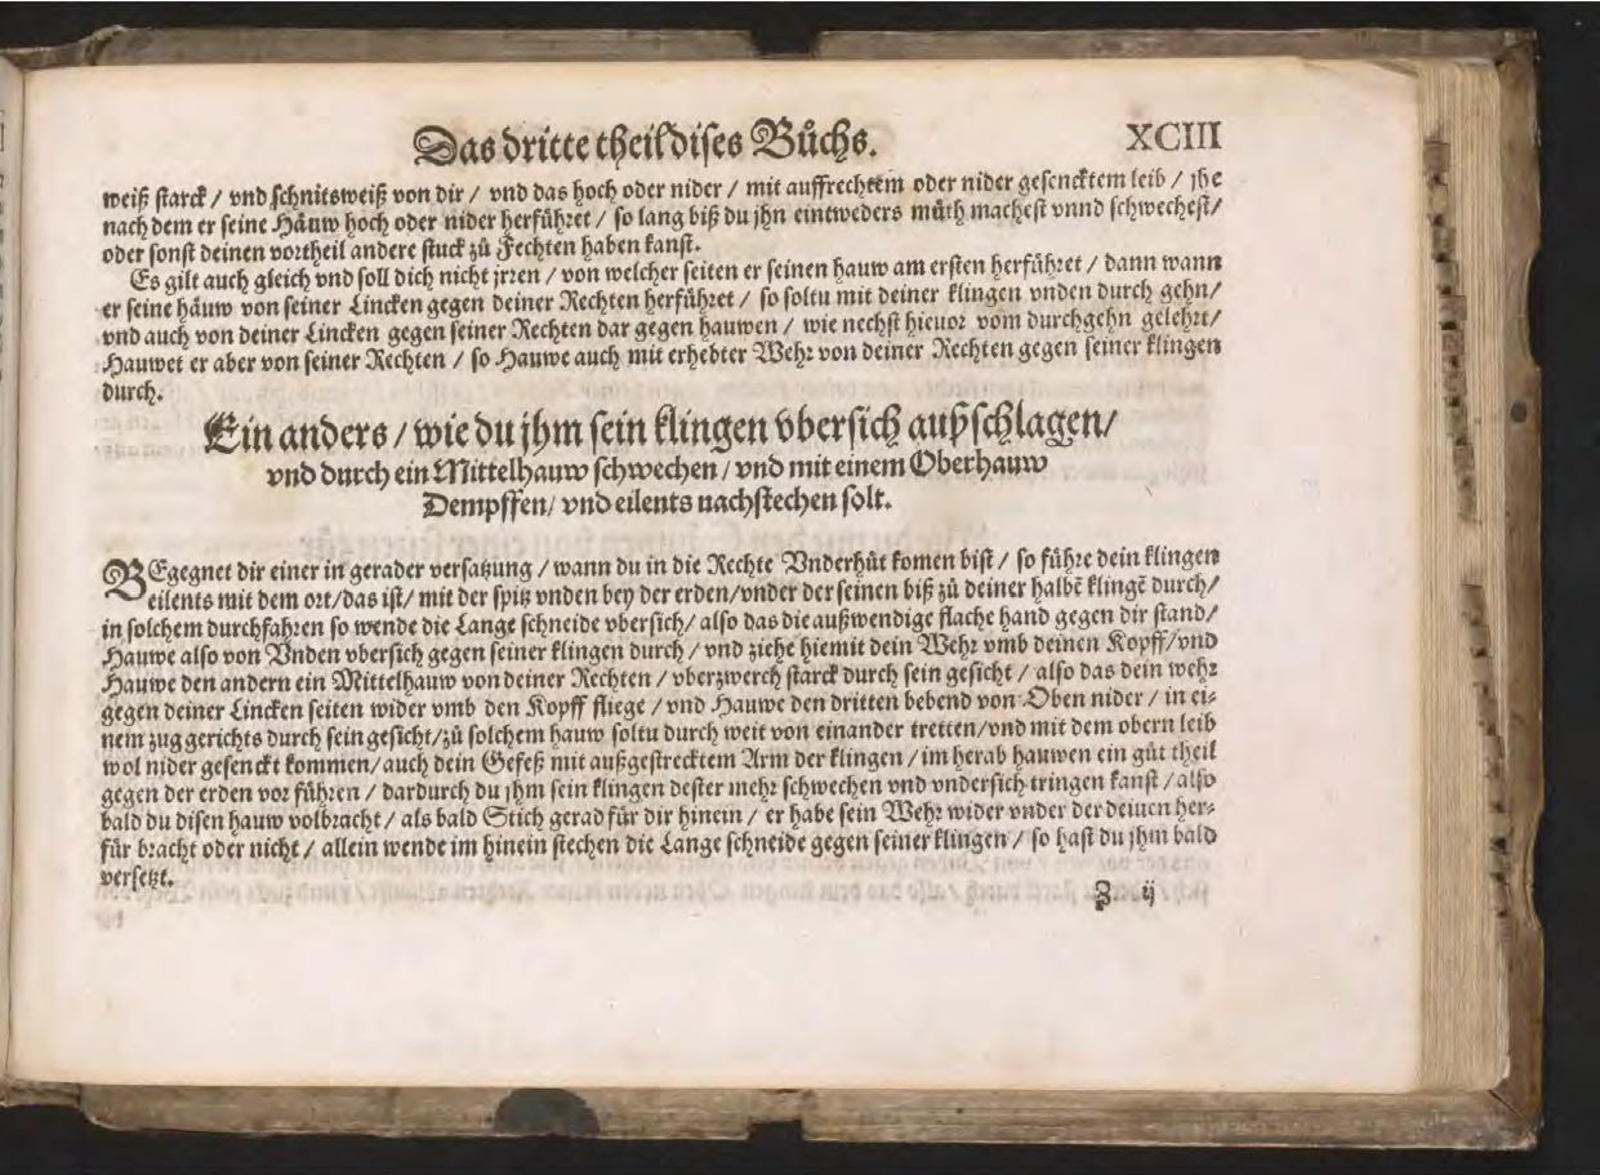 Das dritte theil dises Bůchs.
XCIII
weiß starck / vnd schnitsweiß von dir / vnd das hoch oder nider / mit auffrechtem oder nider gesencktem leib / jhe
nach dem er seine Häuw hoch oder nider herführet / so lang biß du jhn eintweders müth machest vnnd schwechest/
oder sonst deinen vortheil andere stuck zů Fechten haben kanst.
Es gilt auch gleich vnd soll dich nicht jrren / von welcher seiten er seinen hauw am ersten herführet / dann wann
er seine häuw von seiner Lincken gegen deiner Rechten herführet / so soltu mit deiner klingen vnden durch gehn/
vnd auch von deiner Lincken gegen seiner Rechten dar gegen hauwen / wie nechst hieuor vom durchgehn gelehrt/
Hauwet er aber von seiner Rechten / so Hauwe auch mit erhebter Wehr von deiner Rechten gegen seiner klingen
durch.
Ein anders / wie du jhm sein klingen vbersich außschlagen/
vnd durch ein Mittelhauw schwechen / vnd mit einem Oberhauw
Dempffen/ vnd eilents nachstechen solt.
BEgegnet dir einer in gerader versatzung / wann du in die Rechte Vnderhůt komen bist / so führe dein klingen
eilents mit dem ort/das ist/ mit der spitz vnden bey der erden/vnder der seinen biß zů deiner halbẽ klingẽ durch/
in solchem durchfahren so wende die Lange schneide vbersich/ also das die außwendige flache hand gegen dir stand/
Hauwe also von Vnden vbersich gegen seiner klingen durch / vnd ziehe hiemit dein Wehr vmb deinen Kopff/vnd
Hauwe den andern ein Mittelhauw von deiner Rechten / vberzwerch starck durch sein gesicht / also das dein wehr
gegen deiner Lincken seiten wider vmb den Kopff fliege / vnd Hauwe den dritten behend von Oben nider / in ei-
nem zug gerichts durch sein gesicht/zů solchem hauw soltu durch weit von einander tretten/vnd mit dem obern leib
wol nider gesenckt kommen/ auch dein Gefeß mit außgestrecktem Arm der klingen / im herab hauwen ein gůt theil
gegen der erden vor führen / dardurch du jhm sein klingen dester mehr schwechen vnd vndersich tringen kanst / also
bald du disen hauw volbracht / als bald Stich gerad für dir hinein / er habe sein Wehr wider vnder der deinen her-
für bracht oder nicht / allein wende im hinein stechen die Lange schneide gegen seiner klingen / so hast du jhm bald
versetzt.
Z ij